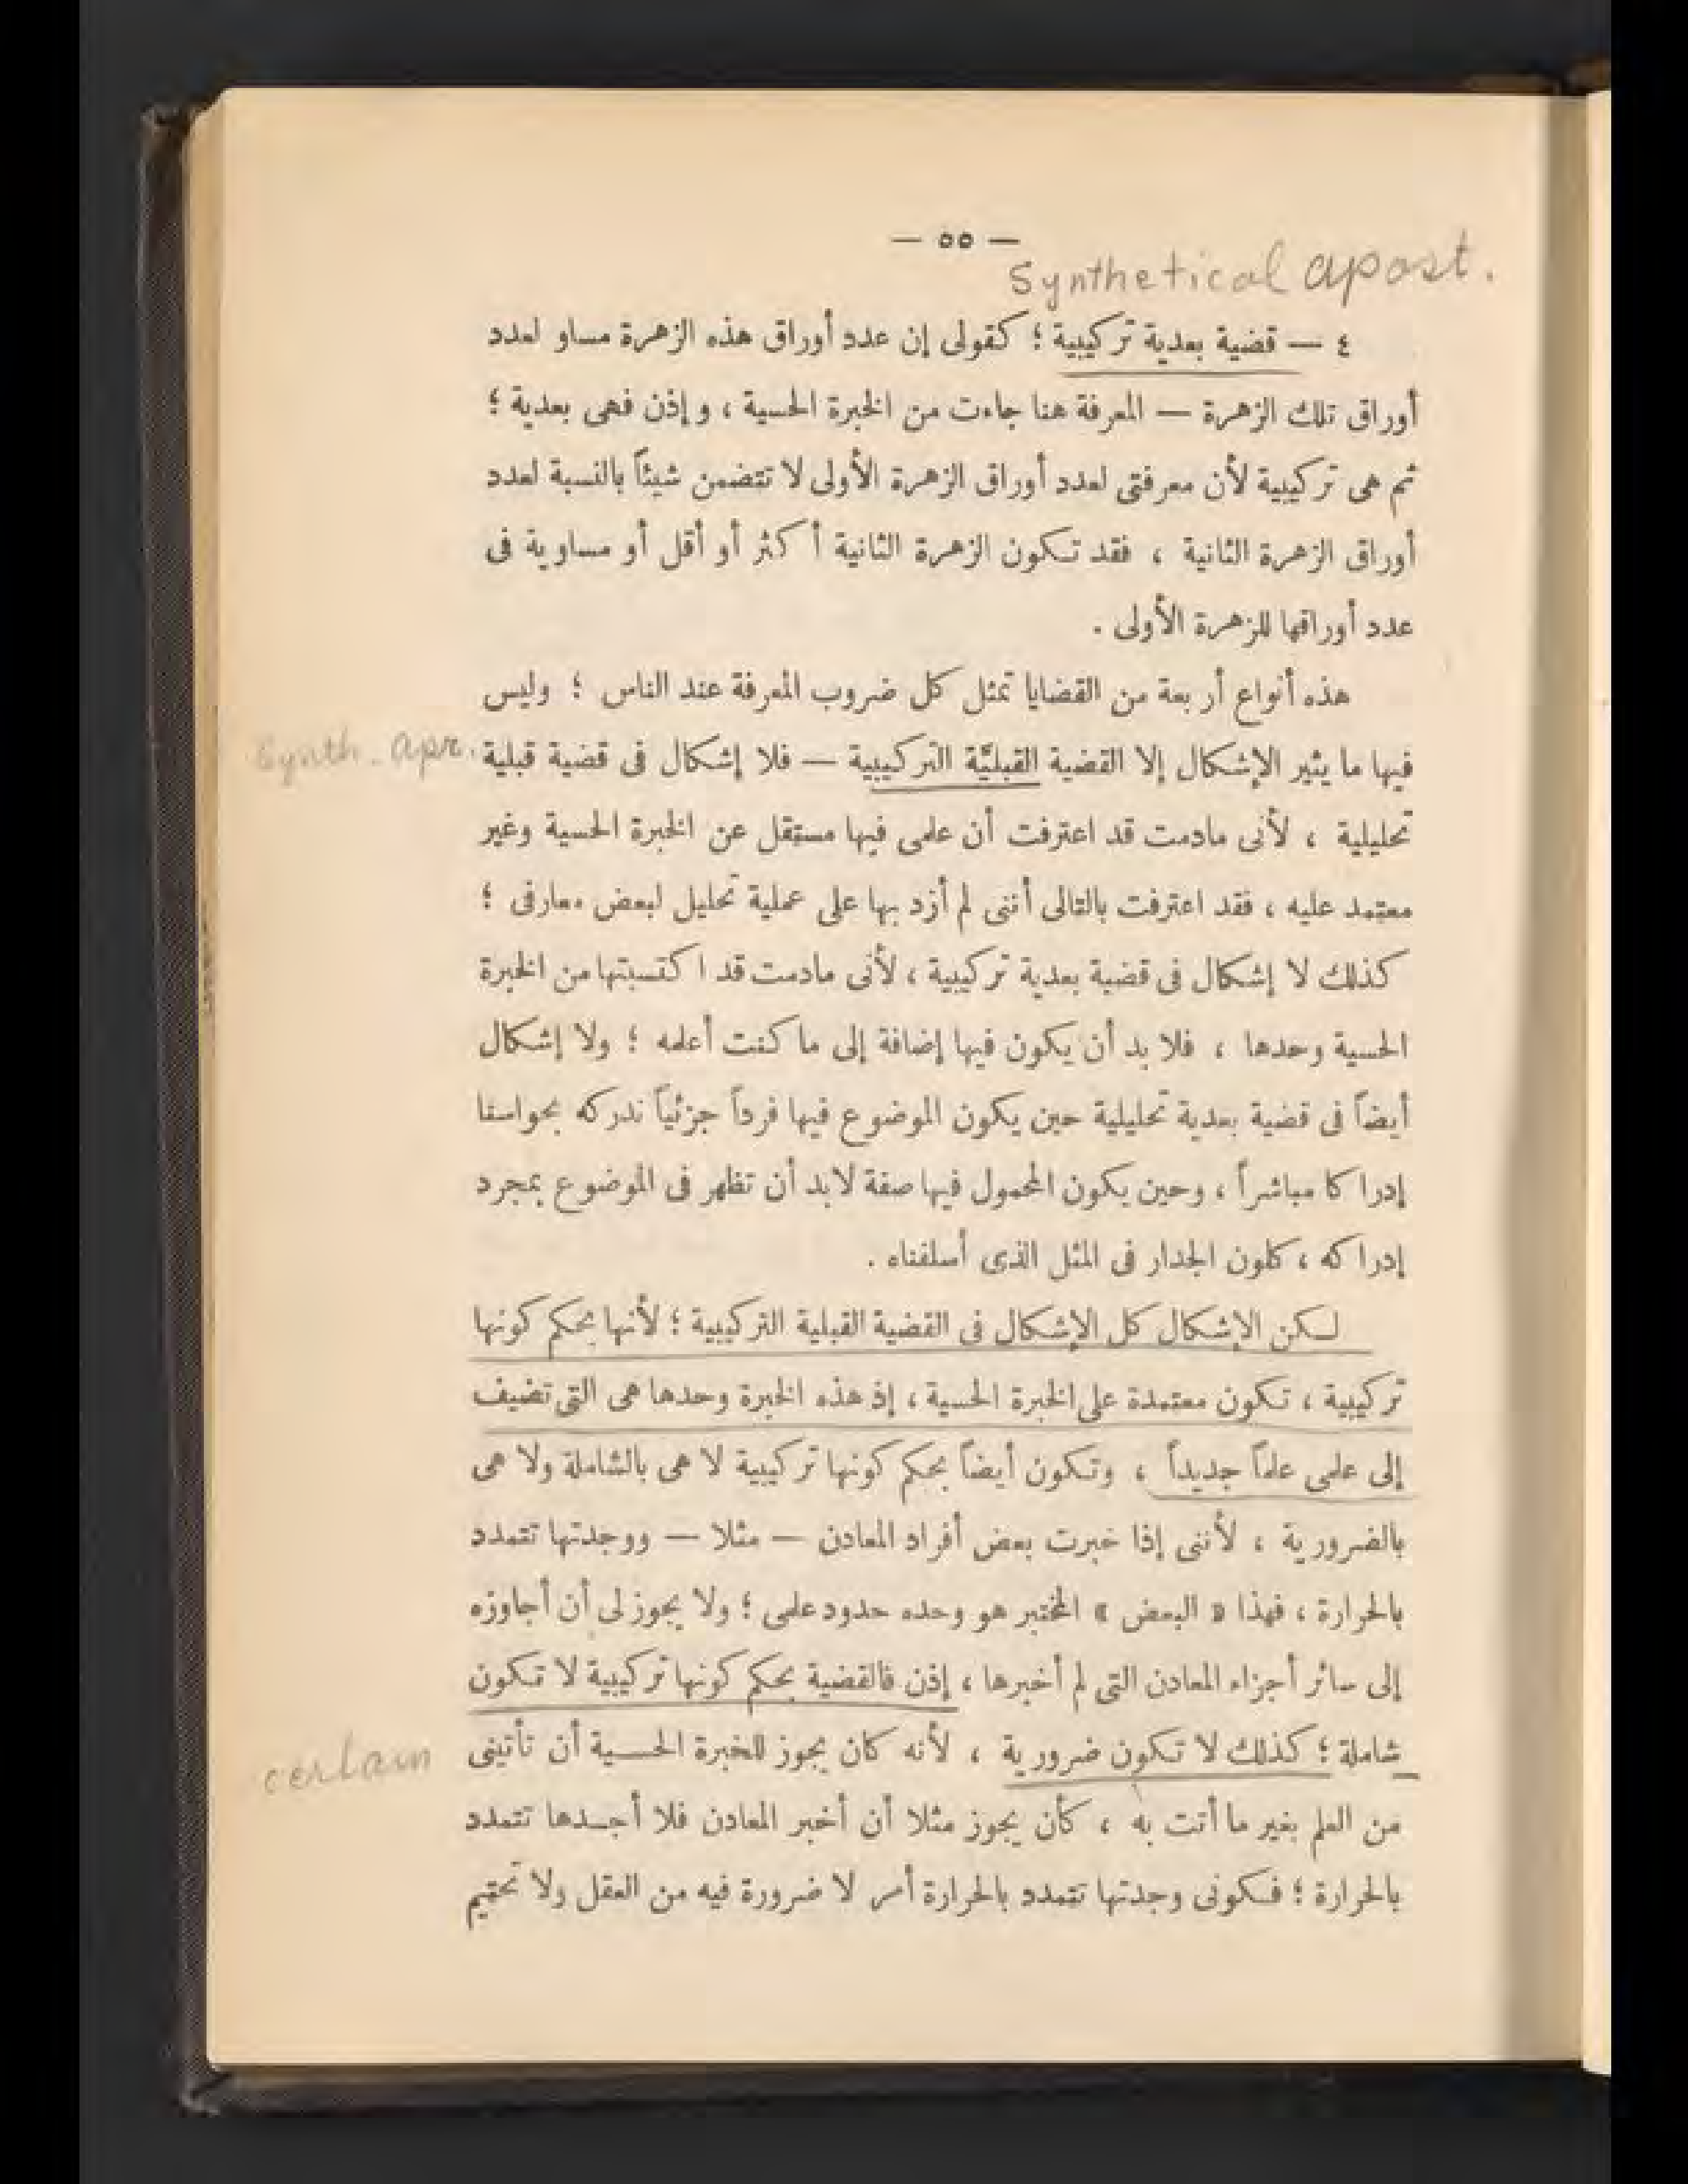 — ٥٥ —
Synthetical apost.
٤ — قضية بعدية تركيبية ؛ كقولى إن عدد أوراق هذه الزهرة مساو لعدد
أوراق تلك الزهرة — المعرفة هنا جاءت من الخبرة الحسية ، وإذن فهى بعدية ؛
ثم هى تركيبية لأن معرفتى لعدد أوراق الزهرة الأولى لا تتضمن شيئاً بالنسبة لعدد
أوراق الزهرة الثانية ، فقد تكون الزهرة الثانية أكثر أو أقل أو مساوية فى
عدد أوراقها للزهرة الأولى .
هذه أنواع أربعة من القضايا تمثل كل ضروب المعرفة عند الناس ؛ وليس
فيها ما يثير الإشكال إلا القضية القبليَّة التركيبية — فلا إشكال فى قضية قبلية
Synth. apr.
تحليلية ، لأنى مادمت قد اعترفت أن علمى فيها مستقل عن الخبرة الحسية وغير
معتمد عليه ، فقد اعترفت بالتالى أننى لم أزد بها على عملية تحليل لبعض معارفى ؛
كذلك لا إشكال فى قضية بعدية تركيبية ، لأنى مادمت قد اكتسبتها من الخبرة
الحسية وحدها ، فلا بد أن يكون فيها إضافة إلى ما كنت أعلمه ؛ ولا إشكال
أيضاً فى قضية بعدية تحليلية حين يكون الموضوع فيها فرداً جزئياً ندركه بحواسنا
إدراكا مباشراً ، وحين يكون المحمول فيها صفة لابد أن تظهر فى الموضوع بمجرد
إدراكه ، كلون الجدار فى المثل الذى أسلفناه .
لكن الإشكال كل الإشكال فى القضية القبلية التركيبية ؛ لأنها بحكم كونها
تركيبية ، تكون معتمدة على الخبرة الحسية ، إذ هذه الخبرة وحدها هى التى تضيف
إلى علمى علماً جديداً ، وتكون أيضاً بحكم كونها تركيبية لا هى بالشاملة ولا هى
بالضرورية ، لأننى إذا خبرت بعض أفراد المعادن — مثلا — ووجدتها تتمدد
بالحرارة ، فهذا « البعض » المختبر هو وحده حدود علمى ؛ ولا يجوز لى أن أجاوزه
إلى سائر أجزاء المعادن التى لم أخبرها ، إذن فالقضية بحكم كونها تركيبية لا تكون
شاملة ؛ كذلك لا تكون ضرورية ، لأنه كان يجوز للخبرة الحسية أن تأتينى
certain
من العلم بغير ما أتت به ، كأن يجوز مثلا أن أخبر المعادن فلا أجدها تتمدد
بالحرارة ؛ فكونى وجدتها تتمدد بالحرارة أمر لا ضرورة فيه من العقل ولا تحتيم